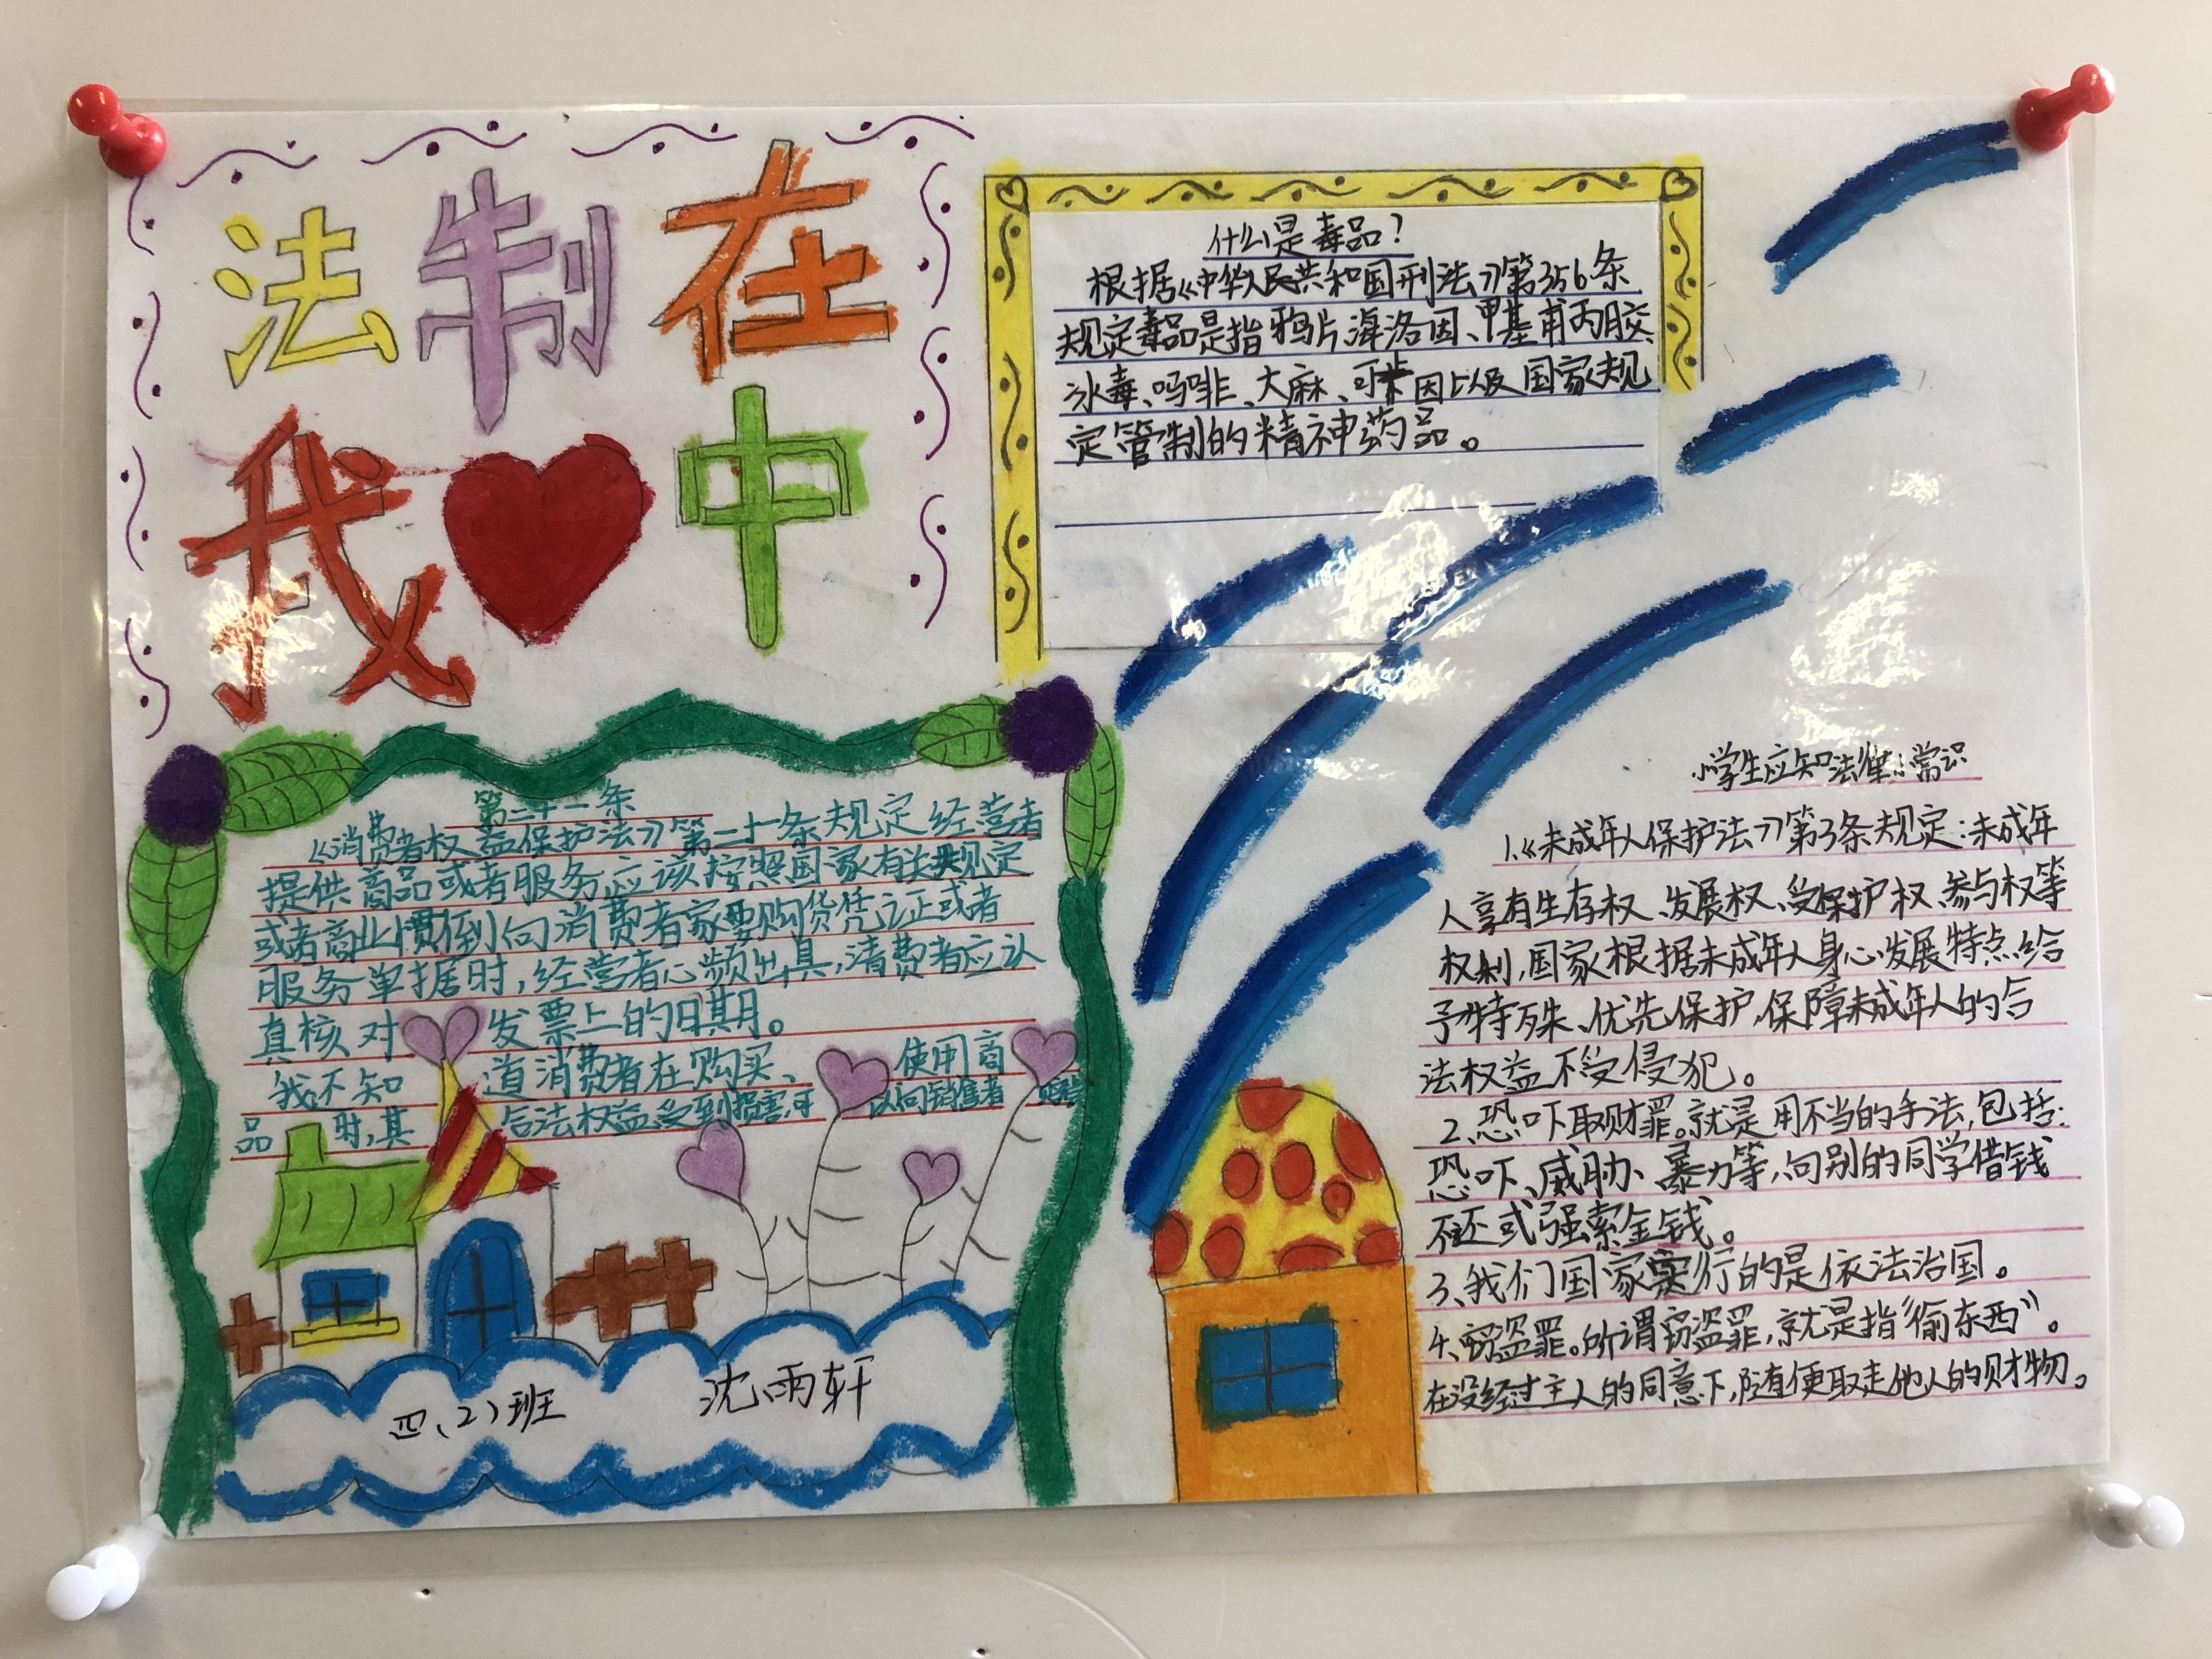 法制在
我 中
什么是毒品？
根据《中华人民共和国刑法》第356条
规定毒品是指鸦片海洛因、甲基甫丙胶、
冰毒、吗啡、大麻、可卡因以及国家规
定管制的精神药品。
第二十一条
《消费者权益保护法》第二十条规定经营者
提供商品或者服务应该按照国家有关规定
或者商业惯例向消费者家要购货凭证或者
服务单据时，经营者心频出具，清费者应认
真核对 发票上的日期。
我不知 道消费者在购买、 使用商
品 时，其 合法权益受到损害，可 以向销售者
四、2）班 沈雨轩
小学生应知法律小常识
1.《未成年人保护法》第3条规定：未成年
人享有生存权、发展权、受保护权、参与权等
权利，国家根据未成年人身心发展特点给
予特殊、优先保护，保障未成年人的合
法权益不受侵犯。
2、恐吓取财罪。就是用不当的手法，包括：
恐吓、威胁、暴力等，向别的同学借钱
不还或强索金钱。
3、我们国家实行的是依法治国。
4、窃盗罪。所谓窃盗罪，就是指“偷东西”。
在没经过主人的同意下，随便取走他人的财物。